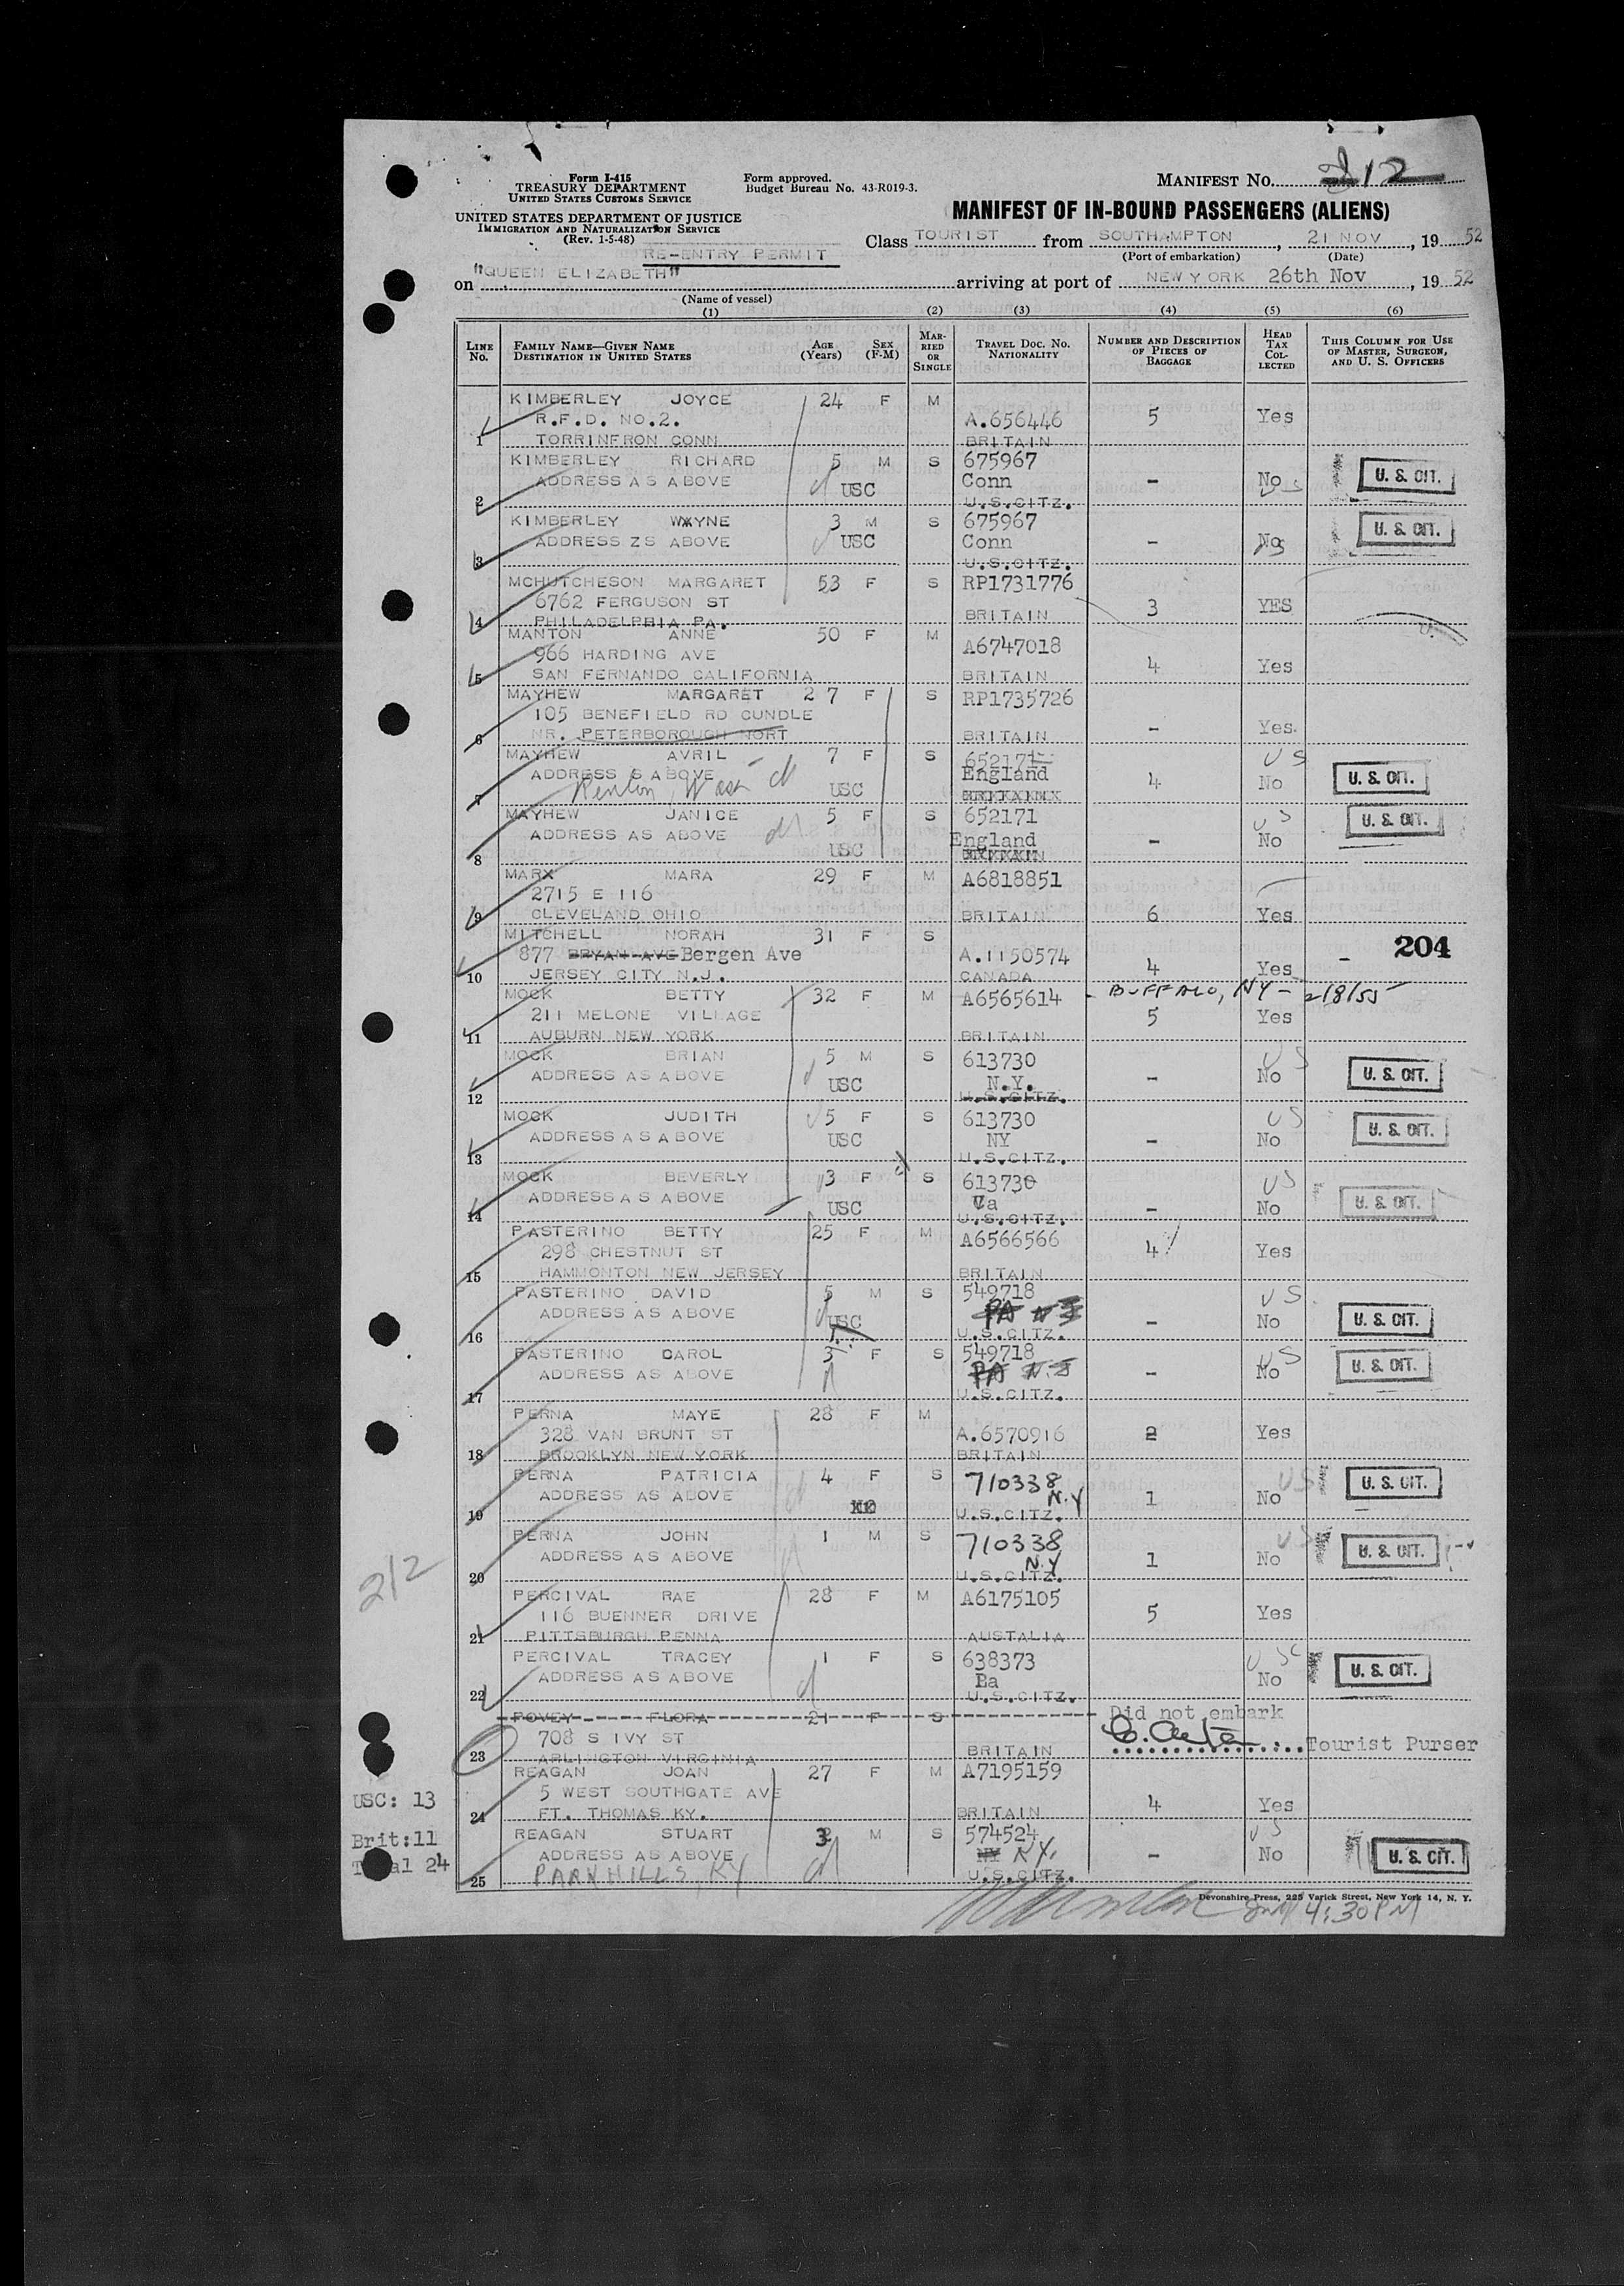 Form I-415
TREASURY DEPARTMENT
UNITED STATES CUSTOMS SERVICE
Form approved.
Budget Bureau No. 43-R019-3.
MANIFEST No. 212
UNITED STATES DEPARTMENT OF JUSTICE
IMMIGRATION AND NATURALIZATION SERVICE
(Rev. 1-5-48)
MANIFEST OF IN-BOUND PASSENGERS (ALIENS)
RE-ENTRY PERMIT
Class TOURIST from SOUTHAMPTON, 21 NOV, 1952
(Port of embarkation) (Date)
on "QUEEN ELIZABETH" arriving at port of NEW YORK 26th Nov, 1952
(Name of vessel)
(1) (2) (3) (4) (5) (6)
LINE No. FAMILY NAME—GIVEN NAME DESTINATION IN UNITED STATES AGE (Years) SEX (F-M) MARRIED OR SINGLE TRAVEL DOC. NO. NATIONALITY NUMBER AND DESCRIPTION OF PIECES OF BAGGAGE HEAD TAX COLLECTED THIS COLUMN FOR USE OF MASTER, SURGEON, AND U. S. OFFICERS
KIMBERLEY JOYCE 24 F M
R.F.D. NO.2. A.656446 5 Yes
1 TORRINFRON CONN BRITAIN
KIMBERLEY RICHARD 5 M S 675967
ADDRESS AS ABOVE USC Conn - No US U. S. CIT.
2 U.S.CITZ.
KIMBERLEY WXYNE 3 M S 675967
ADDRESS ZS ABOVE USC Conn - No US U. S. CIT.
3 U.S.CITZ.
MCHUTCHESON MARGARET 53 F S RP1731776
6762 FERGUSON ST BRITAIN 3 YES
4 PHILADELPBIA PA.
MANTON ANNE 50 F M
966 HARDING AVE A6747018 4 Yes
5 SAN FERNANDO CALIFORNIA BRITAIN
MAYHEW MARGARET 27 F S RP1735726
105 BENEFIELD RD CUNDLE
6 NR. PETERBOROUGH NORT BRITAIN - Yes.
MAYHEW AVRIL 7 F S 652171 US
ADDRESS S ABOVE England 4 No U. S. CIT.
7 Renton, Wash USC
MAYHEW JANICE 5 F S 652171 US U. S. CIT.
ADDRESS AS ABOVE England - No
8 USC
MARX MARA 29 F M A6818851
2715 E 116
9 CLEVELAND OHIO BRITAIN 6 Yes
MITCHELL NORAH 31 F S 204
877 BRYAN AVE Bergen Ave A.1150574 4 Yes -
10 JERSEY CITY N.J. CANADA
MOCK BETTY 32 F M A6565614 - BUFFALO, NY - 2/8/55
211 MELONE VILLAGE 5 Yes
11 AUBURN NEW YORK BRITAIN
MOCK BRIAN 5 M S 613730 US
ADDRESS AS ABOVE USC N.Y. - No U. S. CIT.
12 U.S.CITZ.
MOCK JUDITH 5 F S 613730 US
ADDRESS AS ABOVE USC NY - No U. S. CIT.
13 U.S.CITZ.
MOCK BEVERLY 3 F S 613730 US
ADDRESS AS ABOVE USC Va - No U. S. CIT.
14 U.S.CITZ.
PASTERINO BETTY 25 F M A6566566
298 CHESTNUT ST 4 Yes
15 HAMMONTON NEW JERSEY BRITAIN
PASTERINO DAVID 5 M S 549718 US
ADDRESS AS ABOVE USC PA NJ - No U. S. CIT.
16 U.S.CITZ.
PASTERINO CAROL 3 F S 549718 US
ADDRESS AS ABOVE PA N.J - No U. S. CIT.
17 U.S.CITZ.
PERNA MAYE 28 F M
328 VAN BRUNT ST A.6570916 2 Yes
18 BROOKLYN NEW YORK BRITAIN
PERNA PATRICIA 4 F S 710338 US
ADDRESS AS ABOVE N.Y 1 No U. S. CIT.
19 U.S.CITZ.
PERNA JOHN 1 M S 710338 US
ADDRESS AS ABOVE N.Y 1 No U. S. CIT.
20 U.S.CITZ.
212
PERCIVAL RAE 28 F M A6175105
116 BUENNER DRIVE 5 Yes
21 PITTSBURGH PENNA AUSTALIA
PERCIVAL TRACEY 1 F S 638373 USC
ADDRESS AS ABOVE Pa No U. S. CIT.
22 U.S.CITZ.
POVEY FLORA 21 F S Did not embark
708 S IVY ST
23 ARLINGTON VIRGINIA BRITAIN Tourist Purser
REAGAN JOAN 27 F M A7195159
5 WEST SOUTHGATE AVE 4 Yes
24 FT. THOMAS KY. BRITAIN
REAGAN STUART 3 M S 574524 US
ADDRESS AS ABOVE NY KY. - No U. S. CIT.
25 PARK HILLS, KY U.S.CITZ.
USC: 13
Brit:11
Total 24
Devonshire Press, 225 Varick Street, New York 14, N. Y.
4:30 PM